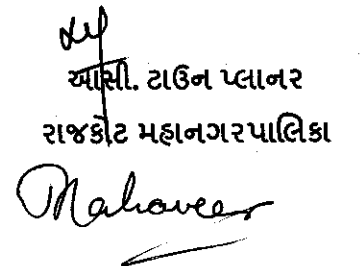 આસી. ટાઉન પ્લાનર
રાજકોટ મહાનગરપાલિકા
Mahaveer